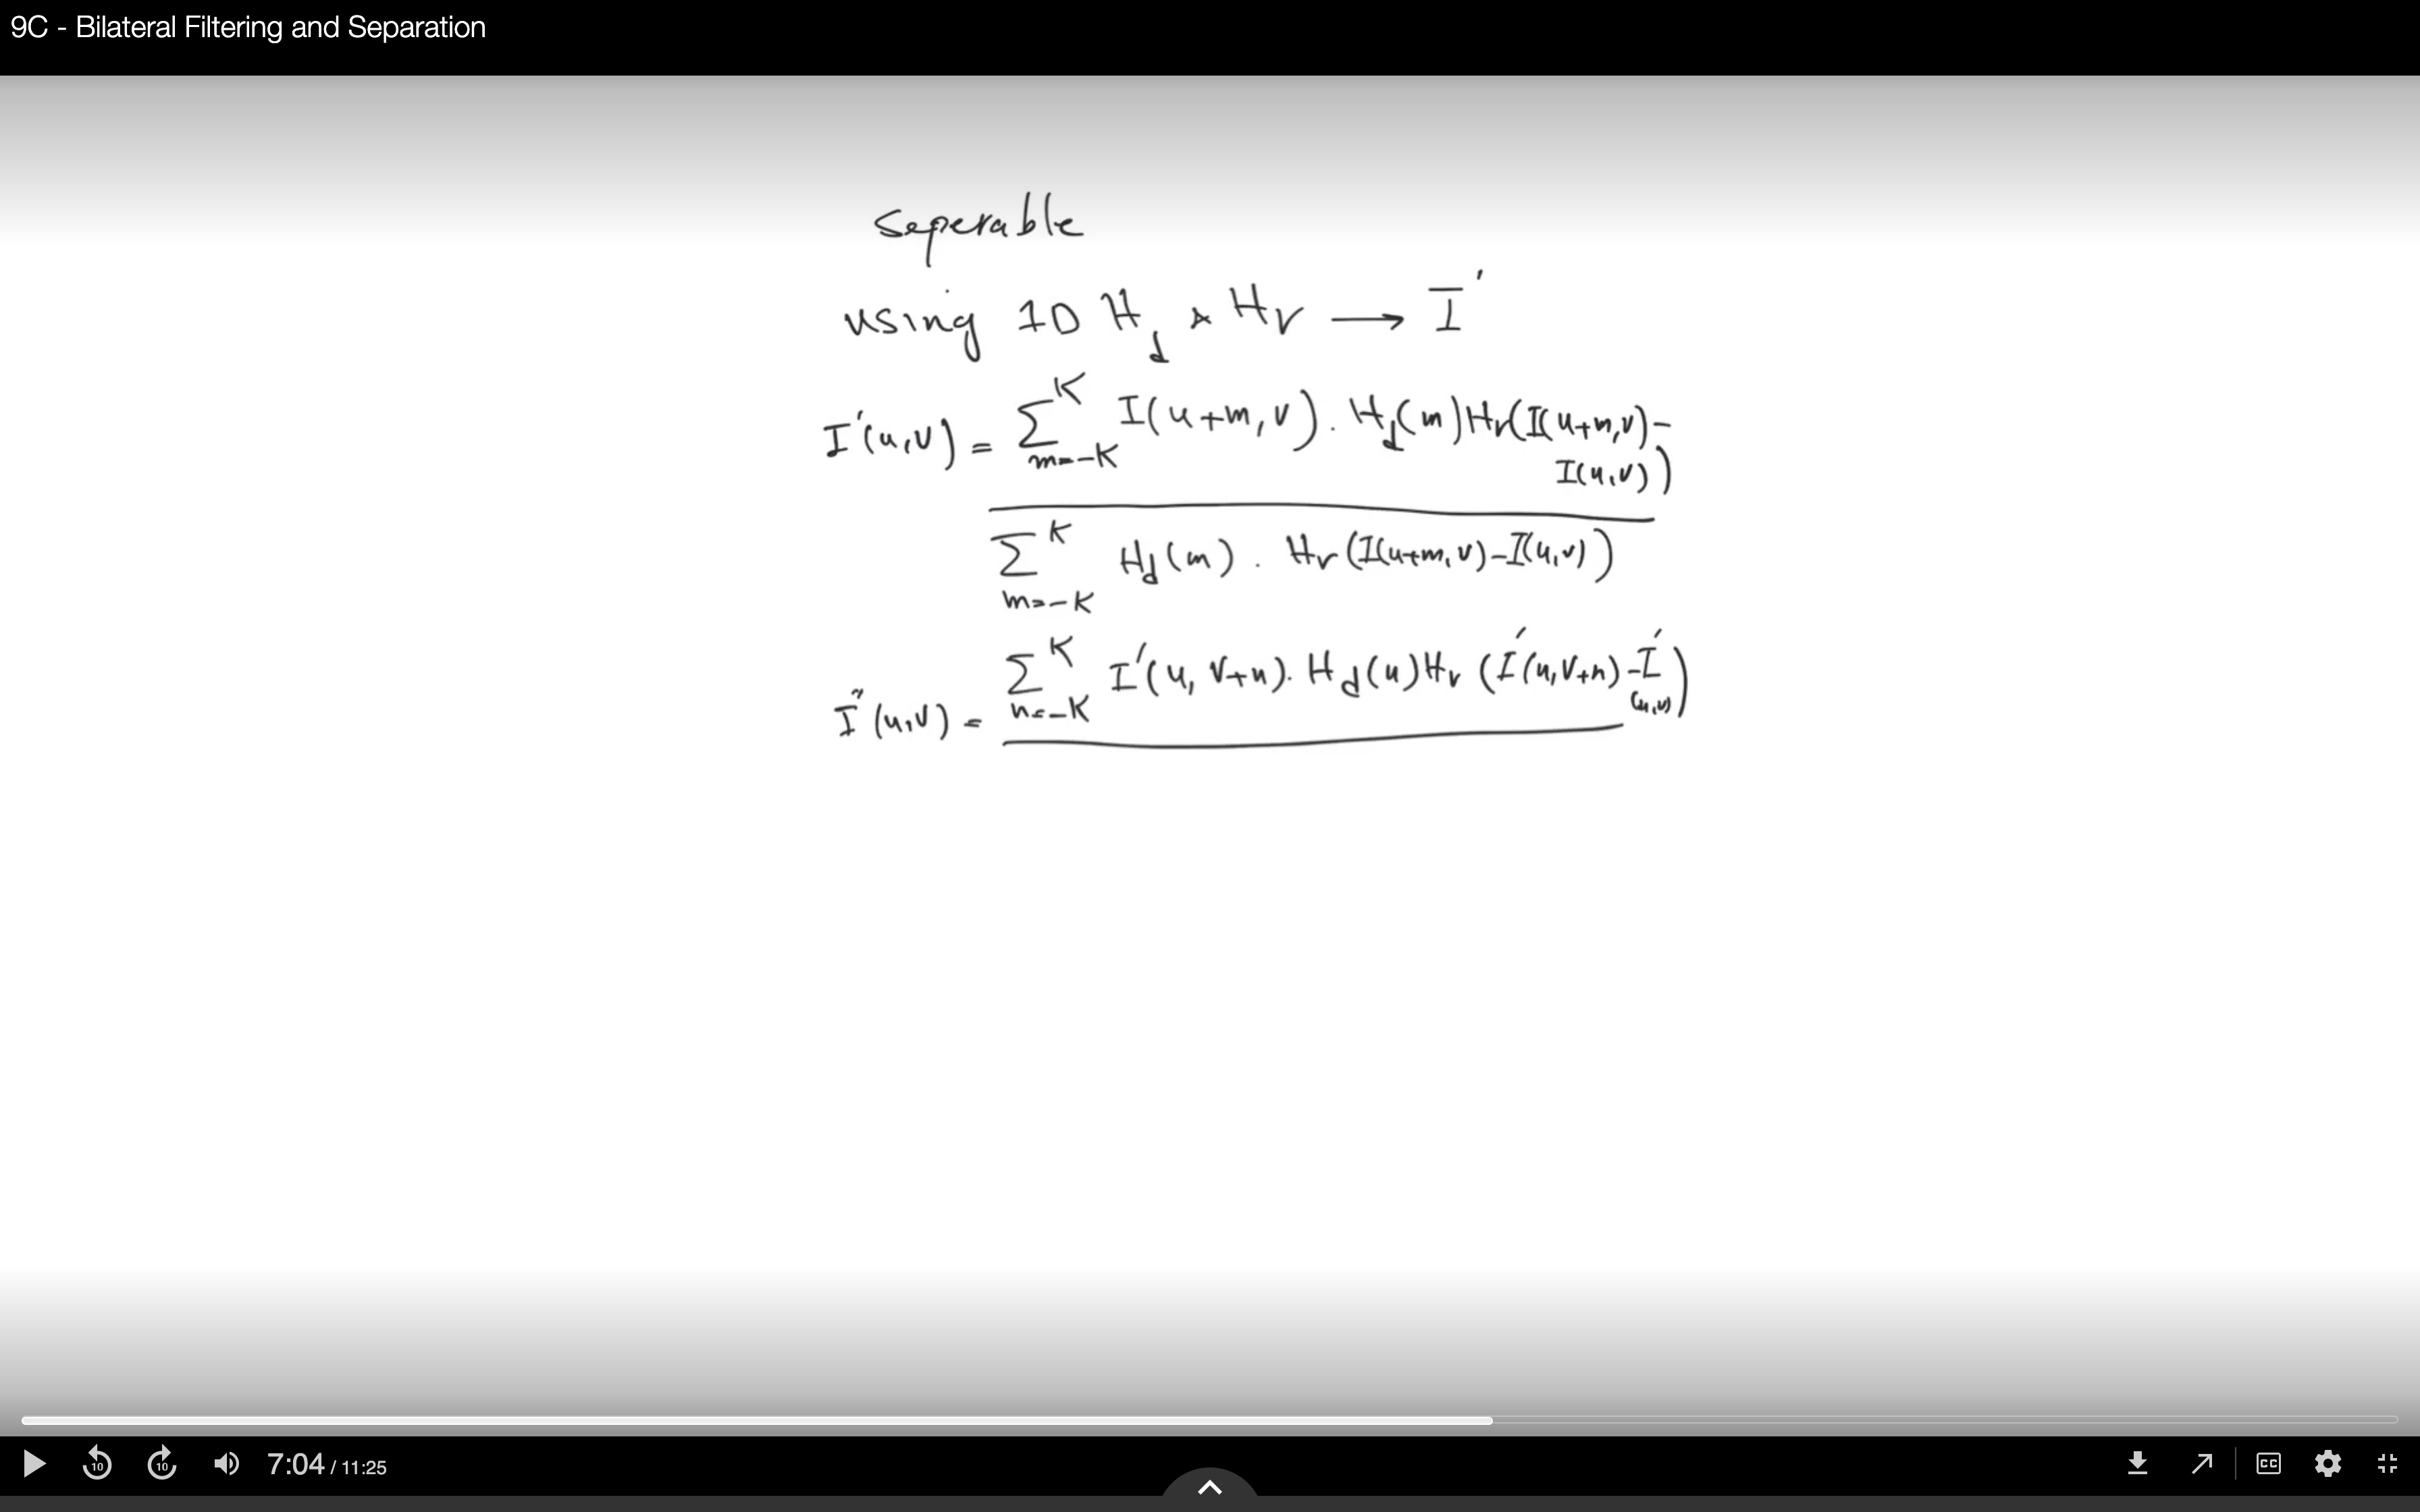 9C - Bilateral Filtering and Separation
seperable
using 1D H_d * H_r → I'
I'(u,v) = Σ_{m=-K}^{K} I(u+m,v). H_d(m) H_r(I(u+m,v)-
I(u,v))
Σ_{m=-K}^{K} H_d(m) . H_r(I(u+m,v)-I(u,v))
I''(u,v) = Σ_{n=-K}^{K} I'(u,v+n). H_d(n) H_r(I'(u,v+n)-I'(u,v))
10
10
7:04 / 11:25
CC